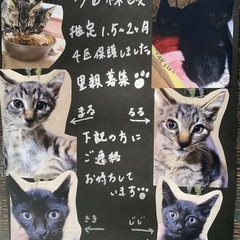 推定 1.5~2ヶ月
4匹保護しました
里親募集
まる
るる
下記の方に
ご連絡
お待ちして
います
きき
じじ